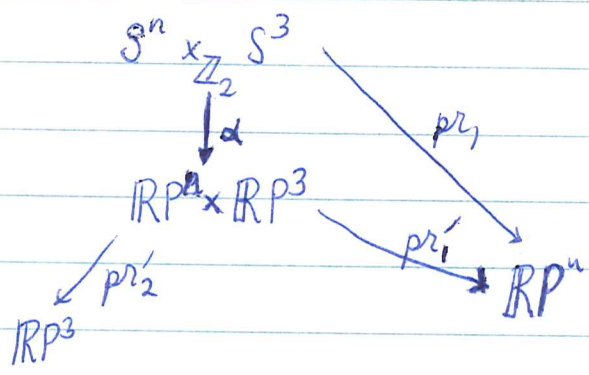 Sⁿ ×_ℤ₂ S³
α
pr₁
ℝPⁿ × ℝP³
pr₁′
pr₂′
ℝPⁿ
ℝP³